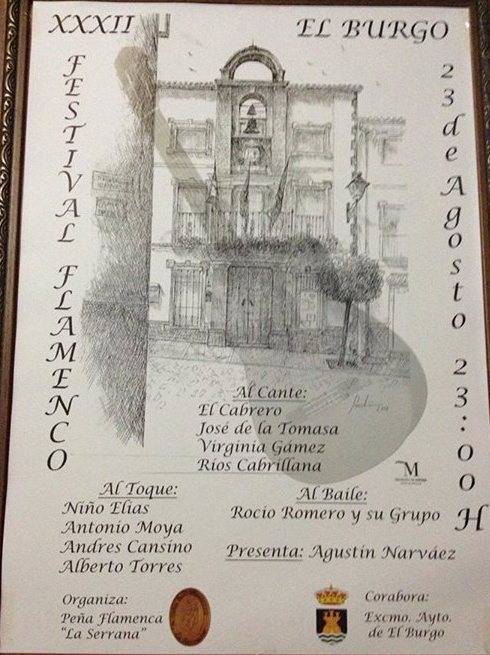 XXXII
EL BURGO
FESTIVAL FLAMENCO
23 de Agosto 23:00H
Al Cante:
El Cabrero
José de la Tomasa
Virginia Gámez
Rios Cabrillana
Al Toque:
Niño Elias
Antonio Moya
Andres Cansino
Alberto Torres
Al Baile:
Rocío Romero y su Grupo
Presenta: Agustín Narváez
Organiza:
Peña Flamenca
"La Serrana"
Corabora:
Excmo. Ayto.
de El Burgo
M